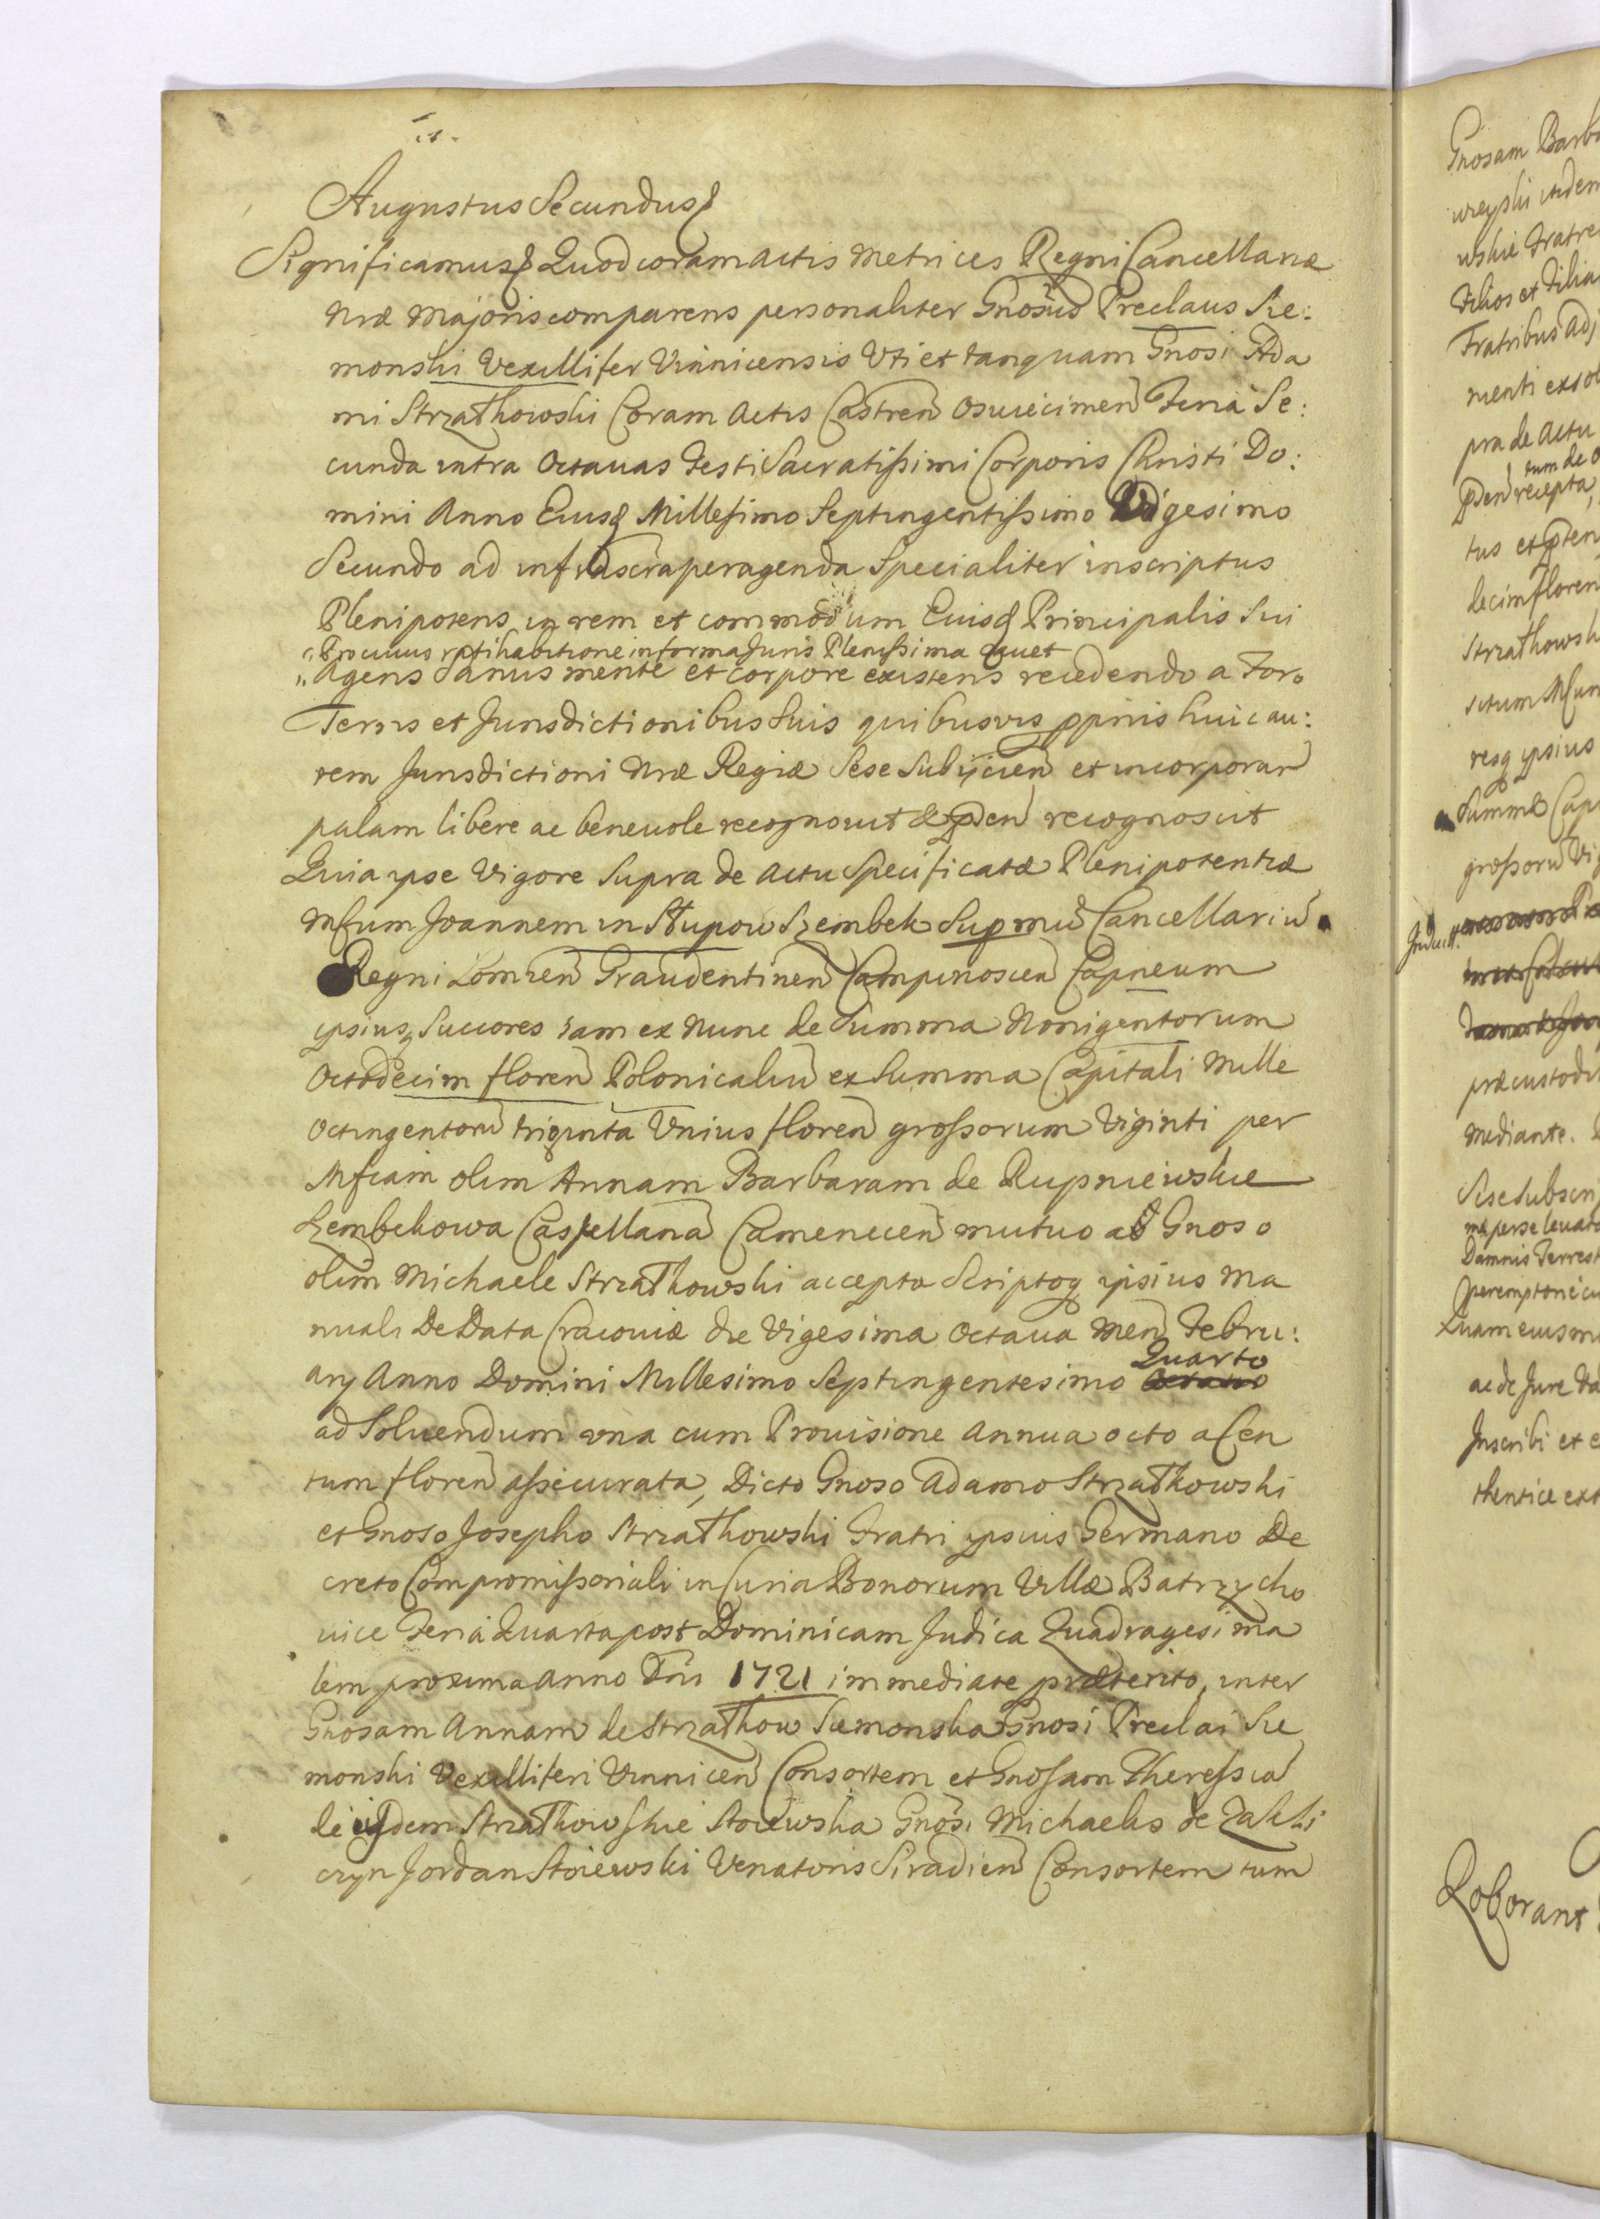 Augustus Secundus &
Significamus & Quod coram Actis Metrices Regni Cancellariæ
Nræ Majoris comparens personaliter Gnosus Preclaus Sie:
monski Vexillifer Vinnicensis Uti et tanquam Gnosi Ada
mi Strzałkowski Coram Actis Castren Osuiecimen Feria Se:
cunda intra Octauas Festi Sacratissimi Corporis Christi Do:
mini Anno Eiusq Millesimo Septingentissimo Vigesimo
Secundo ad infrascra peragenda Specialiter inscriptus
Plenipotens in rem et commodum Eiusq Principalis Sui
"Pro cuius ratihabitione in forma Juris Plenissima cauet
"Agens Sanus mente et corpore existens recedendo a Foro
Terris et Jurisdictionibus Suis quibusvis ppriis huic au:
tem Jurisdictioni Nræ Regiæ Sese Subijcien et incorporan
palam libere ac beneuole recognouit & pden recognoscit
Quia ipse Vigore Supra de Actu Specificatæ Plenipotentiæ
Mfcum Joannem in Słupow Szembek Supmu Cancellariu
Regni Lomzen Graudentinen Campinoscien Capneum
ipsiusq Succores iam ex nunc de Summa Nonigentorum
Octodecim floren Polonicaliu ex Summa Capitali Mille
Octingentoru triginta Unius floren grossorum Viginti per
Mfcam olim Annam Barbaram de Rupniewskie
Szembekowa Castellana Camenecen mutuo ab Gnoso
olim Michaele Strzałkowski accepta Scriptoq ipsius Ma
nuali De Data Cracouiæ die Vigesima Octaua Men Febru:
arij Anno Domini Millesimo Septingentesimo Quarto
ad Soluendum una cum Prouisione Annua octo a Cen
tum floren assecurata, Dicto Gnoso Adamo Strzałkowski
et Gnoso Josepho Strzałkowski Fratri ipsius Germano De
creto Compromissoriali in Curia Bonorum Villæ Patrzycho
uice Feria Quarta post Dominicam Judica Quadragesima
lem proxima Anno Dni 1721 immediate præterito, inter
Gnosam Annam de Strzałkow Siemonska Gnosi Preclai Sie
monski Vexilliferi Vinnicen Consortem et Gnosam Theressia
de ijsdem Strzałkowskie Stoiewska Gnosi Michaelis de Zakli
czyn Jordan Stoiewski Venatoris Siradien Consortem tum
Gnosam Barb
Filios et Filia
Fratribus adj
pra de Actu
pden recepta,
decim floren
Strzałkowsk
resq ipsius
Summæ Cap
grossoru Vig
præcustodi
mediante.
ac de Jure
Inscribi et e
thentice ext
Roborant